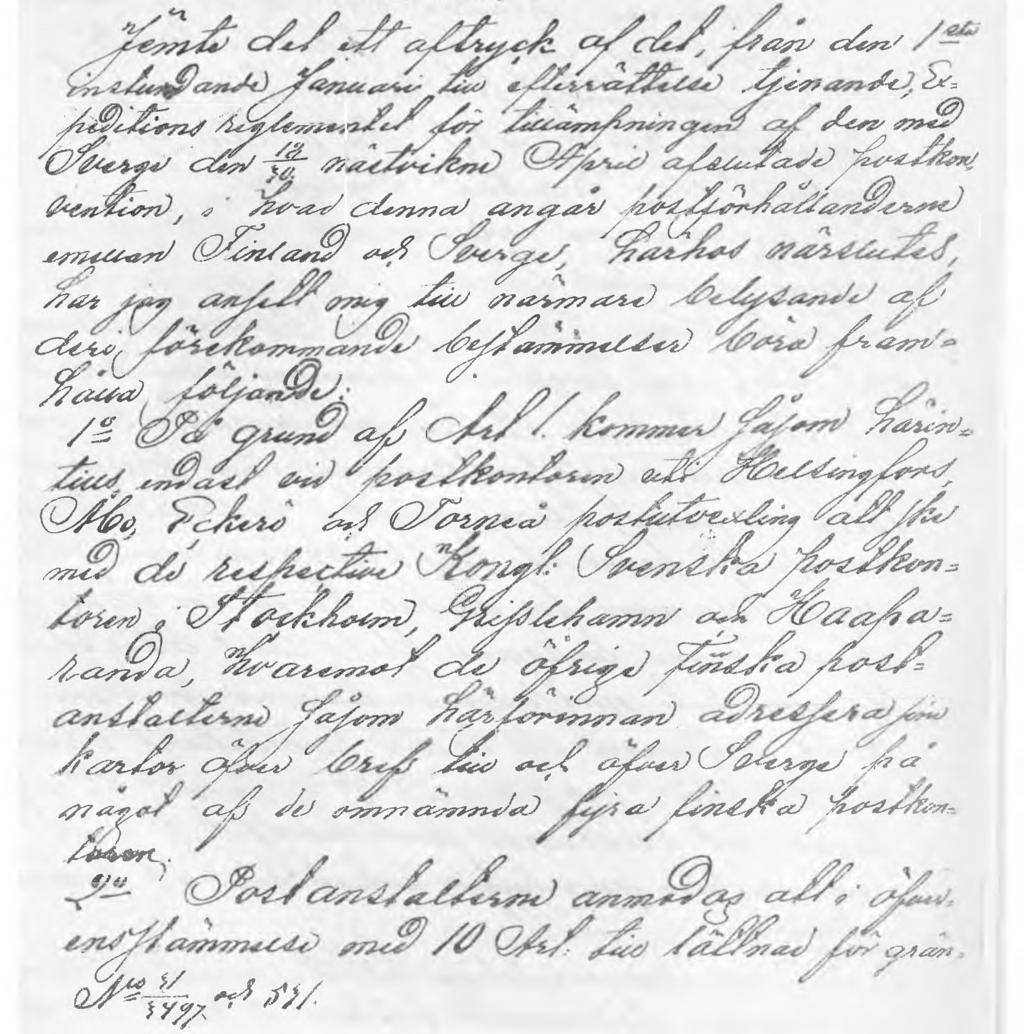 Jemte det ett aftryck af det, från den 1sta
instundande Januari till efterrättelse tjenande, Ex-
peditions reglementet för tillämpningen af den med
Sverge den 18/30 nästvikne April afslutade postkon-
vention, i hvad denna angår postförhållanderne
emellan Finland och Sverge, härhos närslutes,
har jag ansett mig till närmare belysande af
deri förekommande bestämmelser böra fram-
hålla följande:
1o På grund af Art 1. kommer såsom härin-
tills endast vid postkontoren uti Helsingfors,
Åbo, Eckerö och Torneå postutvexling att ske
med de respective Kongl: Svenska postkon-
toren i Stockholm, Grisslehamn och Haapa-
randa, hvaremot de öfrige finska post-
anstalterne såsom härförinnan adressera sine
kartor öfver bref till och öfver Sverge på
något af de omnämnda fyra finska postkon-
toren.
2o Postanstalterne anmodas att i öfver-
ensstämmelse med 10 Art: till tällnad för grän-
Nris och 531.